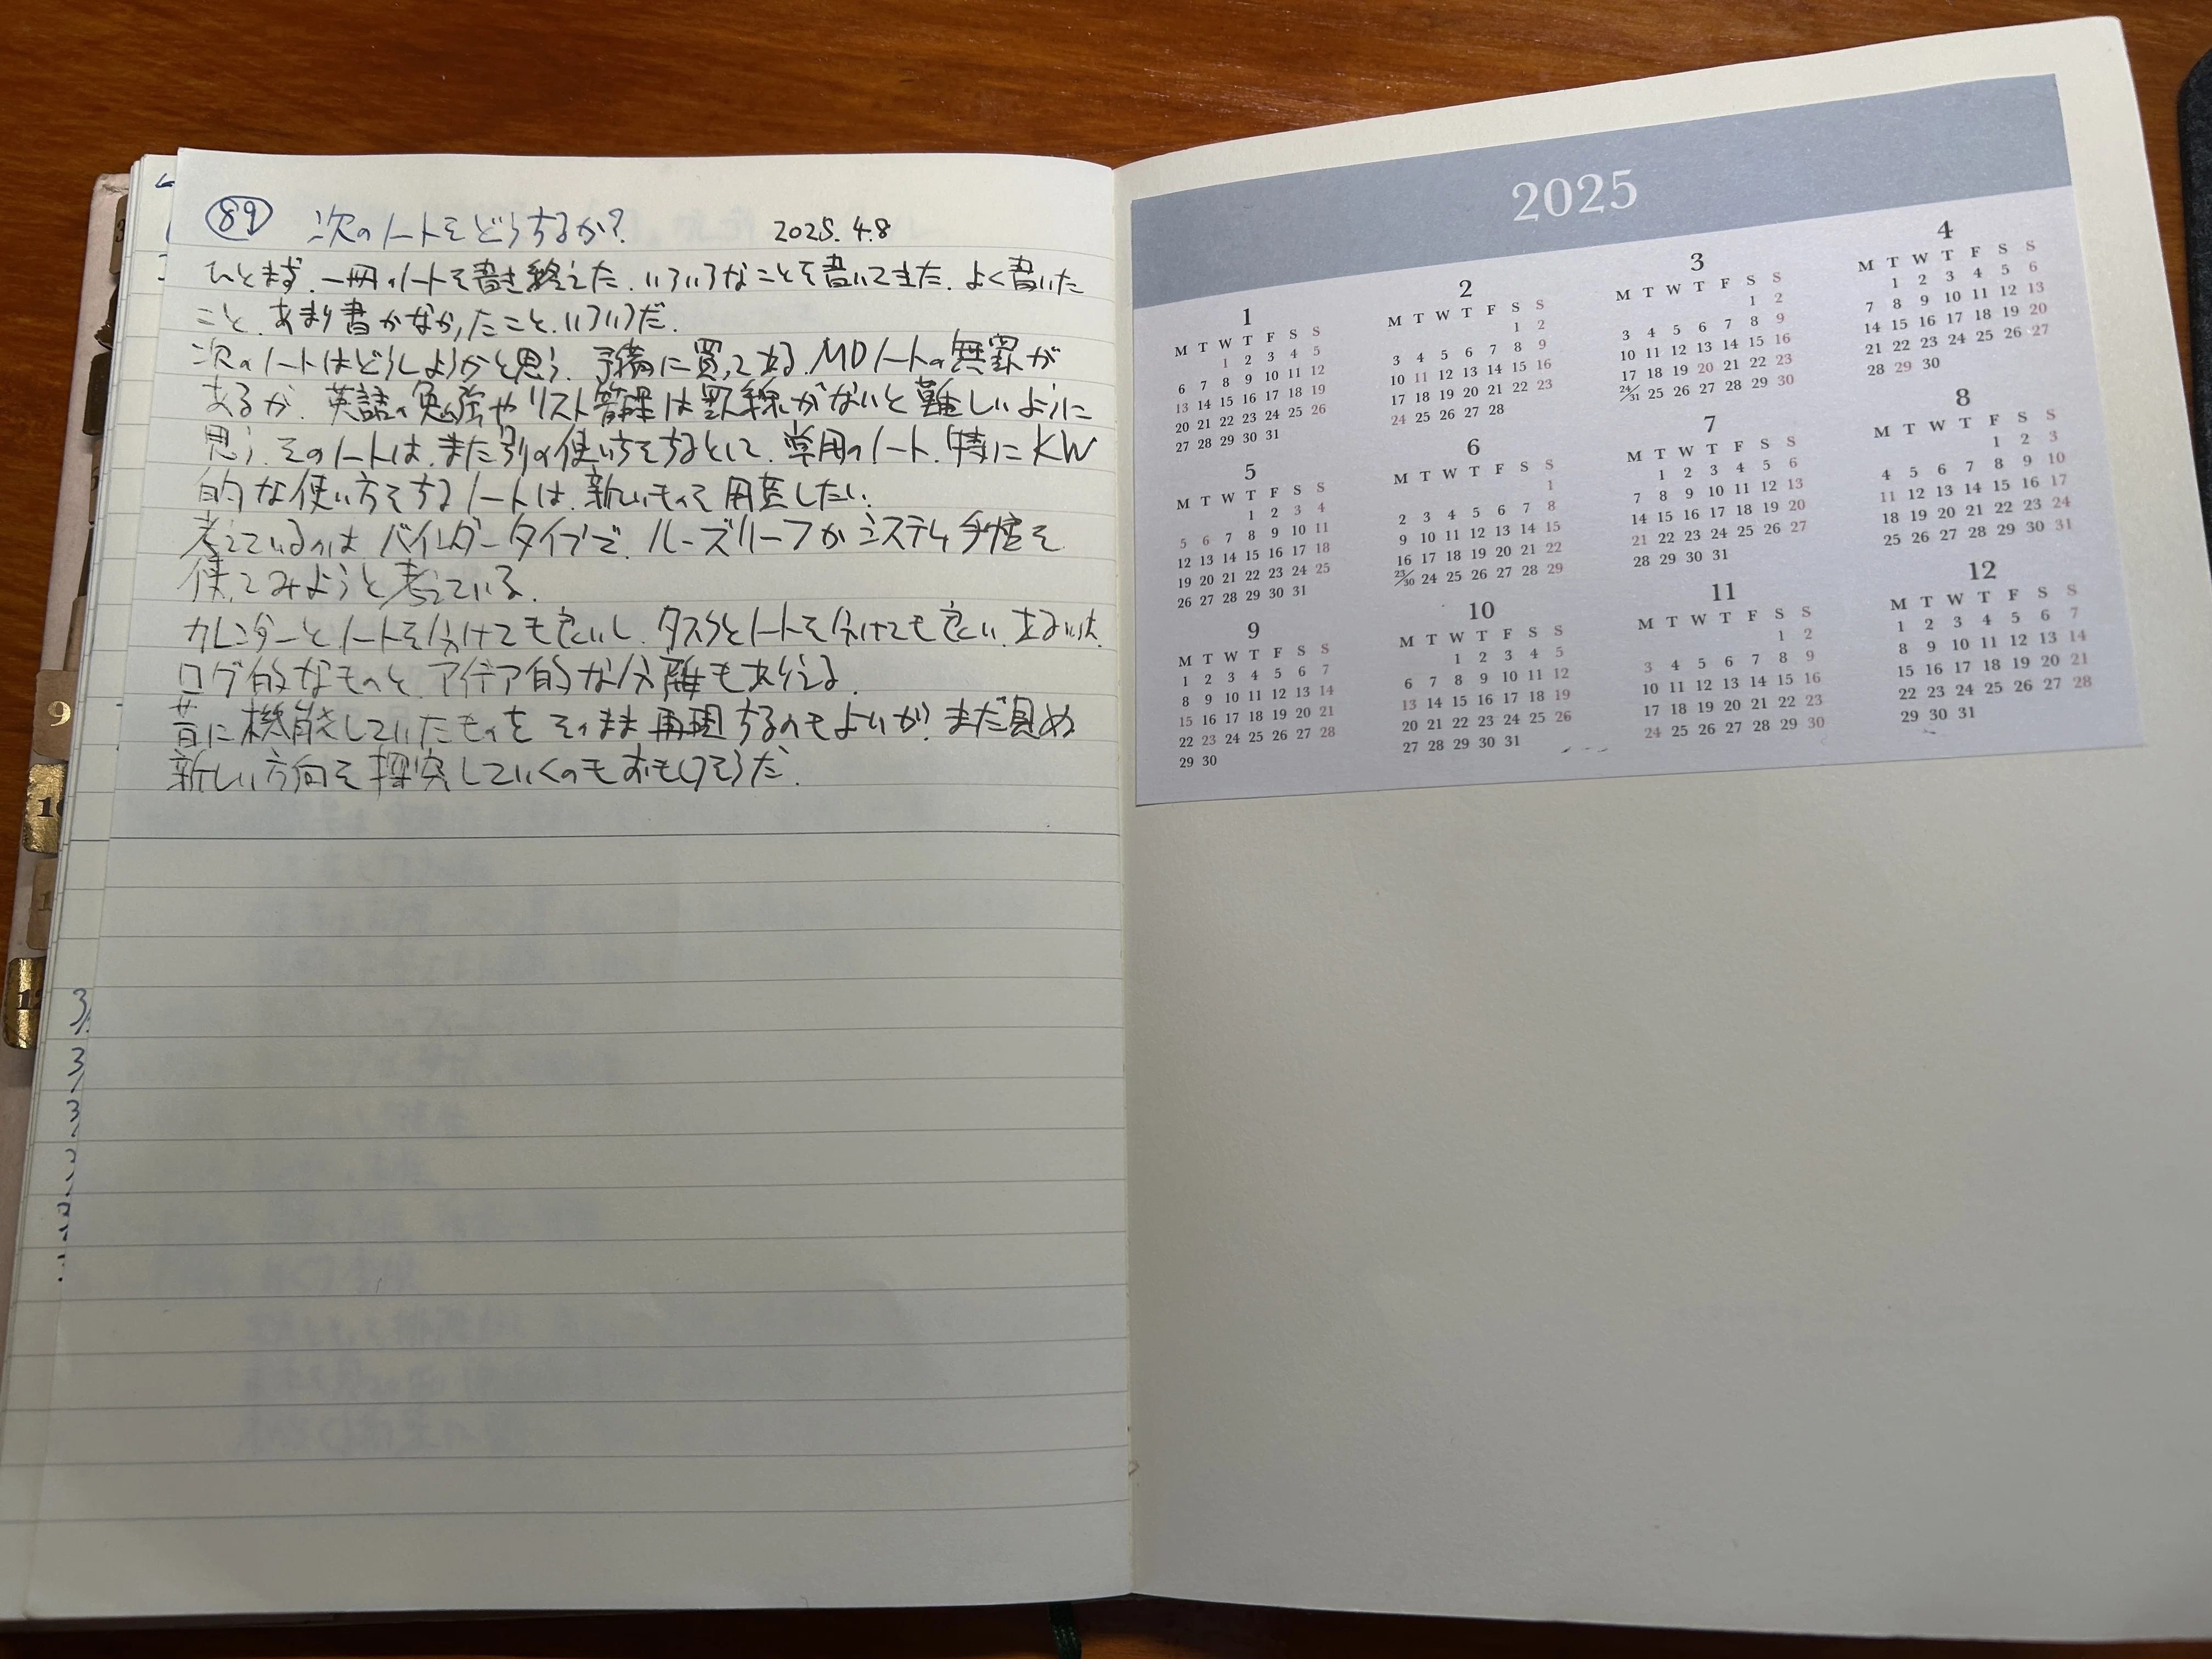 89 次のノートをどうするか? 2025.4.8
ひとまず、一冊のノートを書き終えた。いろいろなことを書いてきた。よく書いた
こと、あまり書かなかったこと、いろいろだ。
次のノートはどうしようかと思う。予備に買ってある、MDノートの無罫が
あるが、英語の勉強やリスト管理は罫線がないと難しいように
思う。そのノートは、また別の使い方をするとして、常用のノート、特にKW
的な使い方をするノートは、新しいものを用意したい。
考えているのは、バインダータイプで、ルーズリーフかシステム手帳を
使ってみようと考えている。
カレンダーとノートを分けても良いし、タスクとノートを分けても良い。あるいは、
ログ的なものと、アイデア的な分離もありえる。
昔に機能していたものを、そのまま再現するのもよいが、まだ見ぬ
新しい方向を探究していくのもおもしろそうだ。
9
3
3
3
2025
1
M T W T F S S
1 2 3 4 5
6 7 8 9 10 11 12
13 14 15 16 17 18 19
20 21 22 23 24 25 26
27 28 29 30 31
2
M T W T F S S
1 2
3 4 5 6 7 8 9
10 11 12 13 14 15 16
17 18 19 20 21 22 23
24 25 26 27 28
3
M T W T F S S
1 2
3 4 5 6 7 8 9
10 11 12 13 14 15 16
17 18 19 20 21 22 23
24/31 25 26 27 28 29 30
4
M T W T F S S
1 2 3 4 5 6
7 8 9 10 11 12 13
14 15 16 17 18 19 20
21 22 23 24 25 26 27
28 29 30
5
M T W T F S S
1 2 3 4
5 6 7 8 9 10 11
12 13 14 15 16 17 18
19 20 21 22 23 24 25
26 27 28 29 30 31
6
M T W T F S S
1
2 3 4 5 6 7 8
9 10 11 12 13 14 15
16 17 18 19 20 21 22
23/30 24 25 26 27 28 29
7
M T W T F S S
1 2 3 4 5 6
7 8 9 10 11 12 13
14 15 16 17 18 19 20
21 22 23 24 25 26 27
28 29 30 31
8
M T W T F S S
1 2 3
4 5 6 7 8 9 10
11 12 13 14 15 16 17
18 19 20 21 22 23 24
25 26 27 28 29 30 31
9
M T W T F S S
1 2 3 4 5 6 7
8 9 10 11 12 13 14
15 16 17 18 19 20 21
22 23 24 25 26 27 28
29 30
10
M T W T F S S
1 2 3 4 5
6 7 8 9 10 11 12
13 14 15 16 17 18 19
20 21 22 23 24 25 26
27 28 29 30 31
11
M T W T F S S
1 2
3 4 5 6 7 8 9
10 11 12 13 14 15 16
17 18 19 20 21 22 23
24 25 26 27 28 29 30
12
M T W T F S S
1 2 3 4 5 6 7
8 9 10 11 12 13 14
15 16 17 18 19 20 21
22 23 24 25 26 27 28
29 30 31